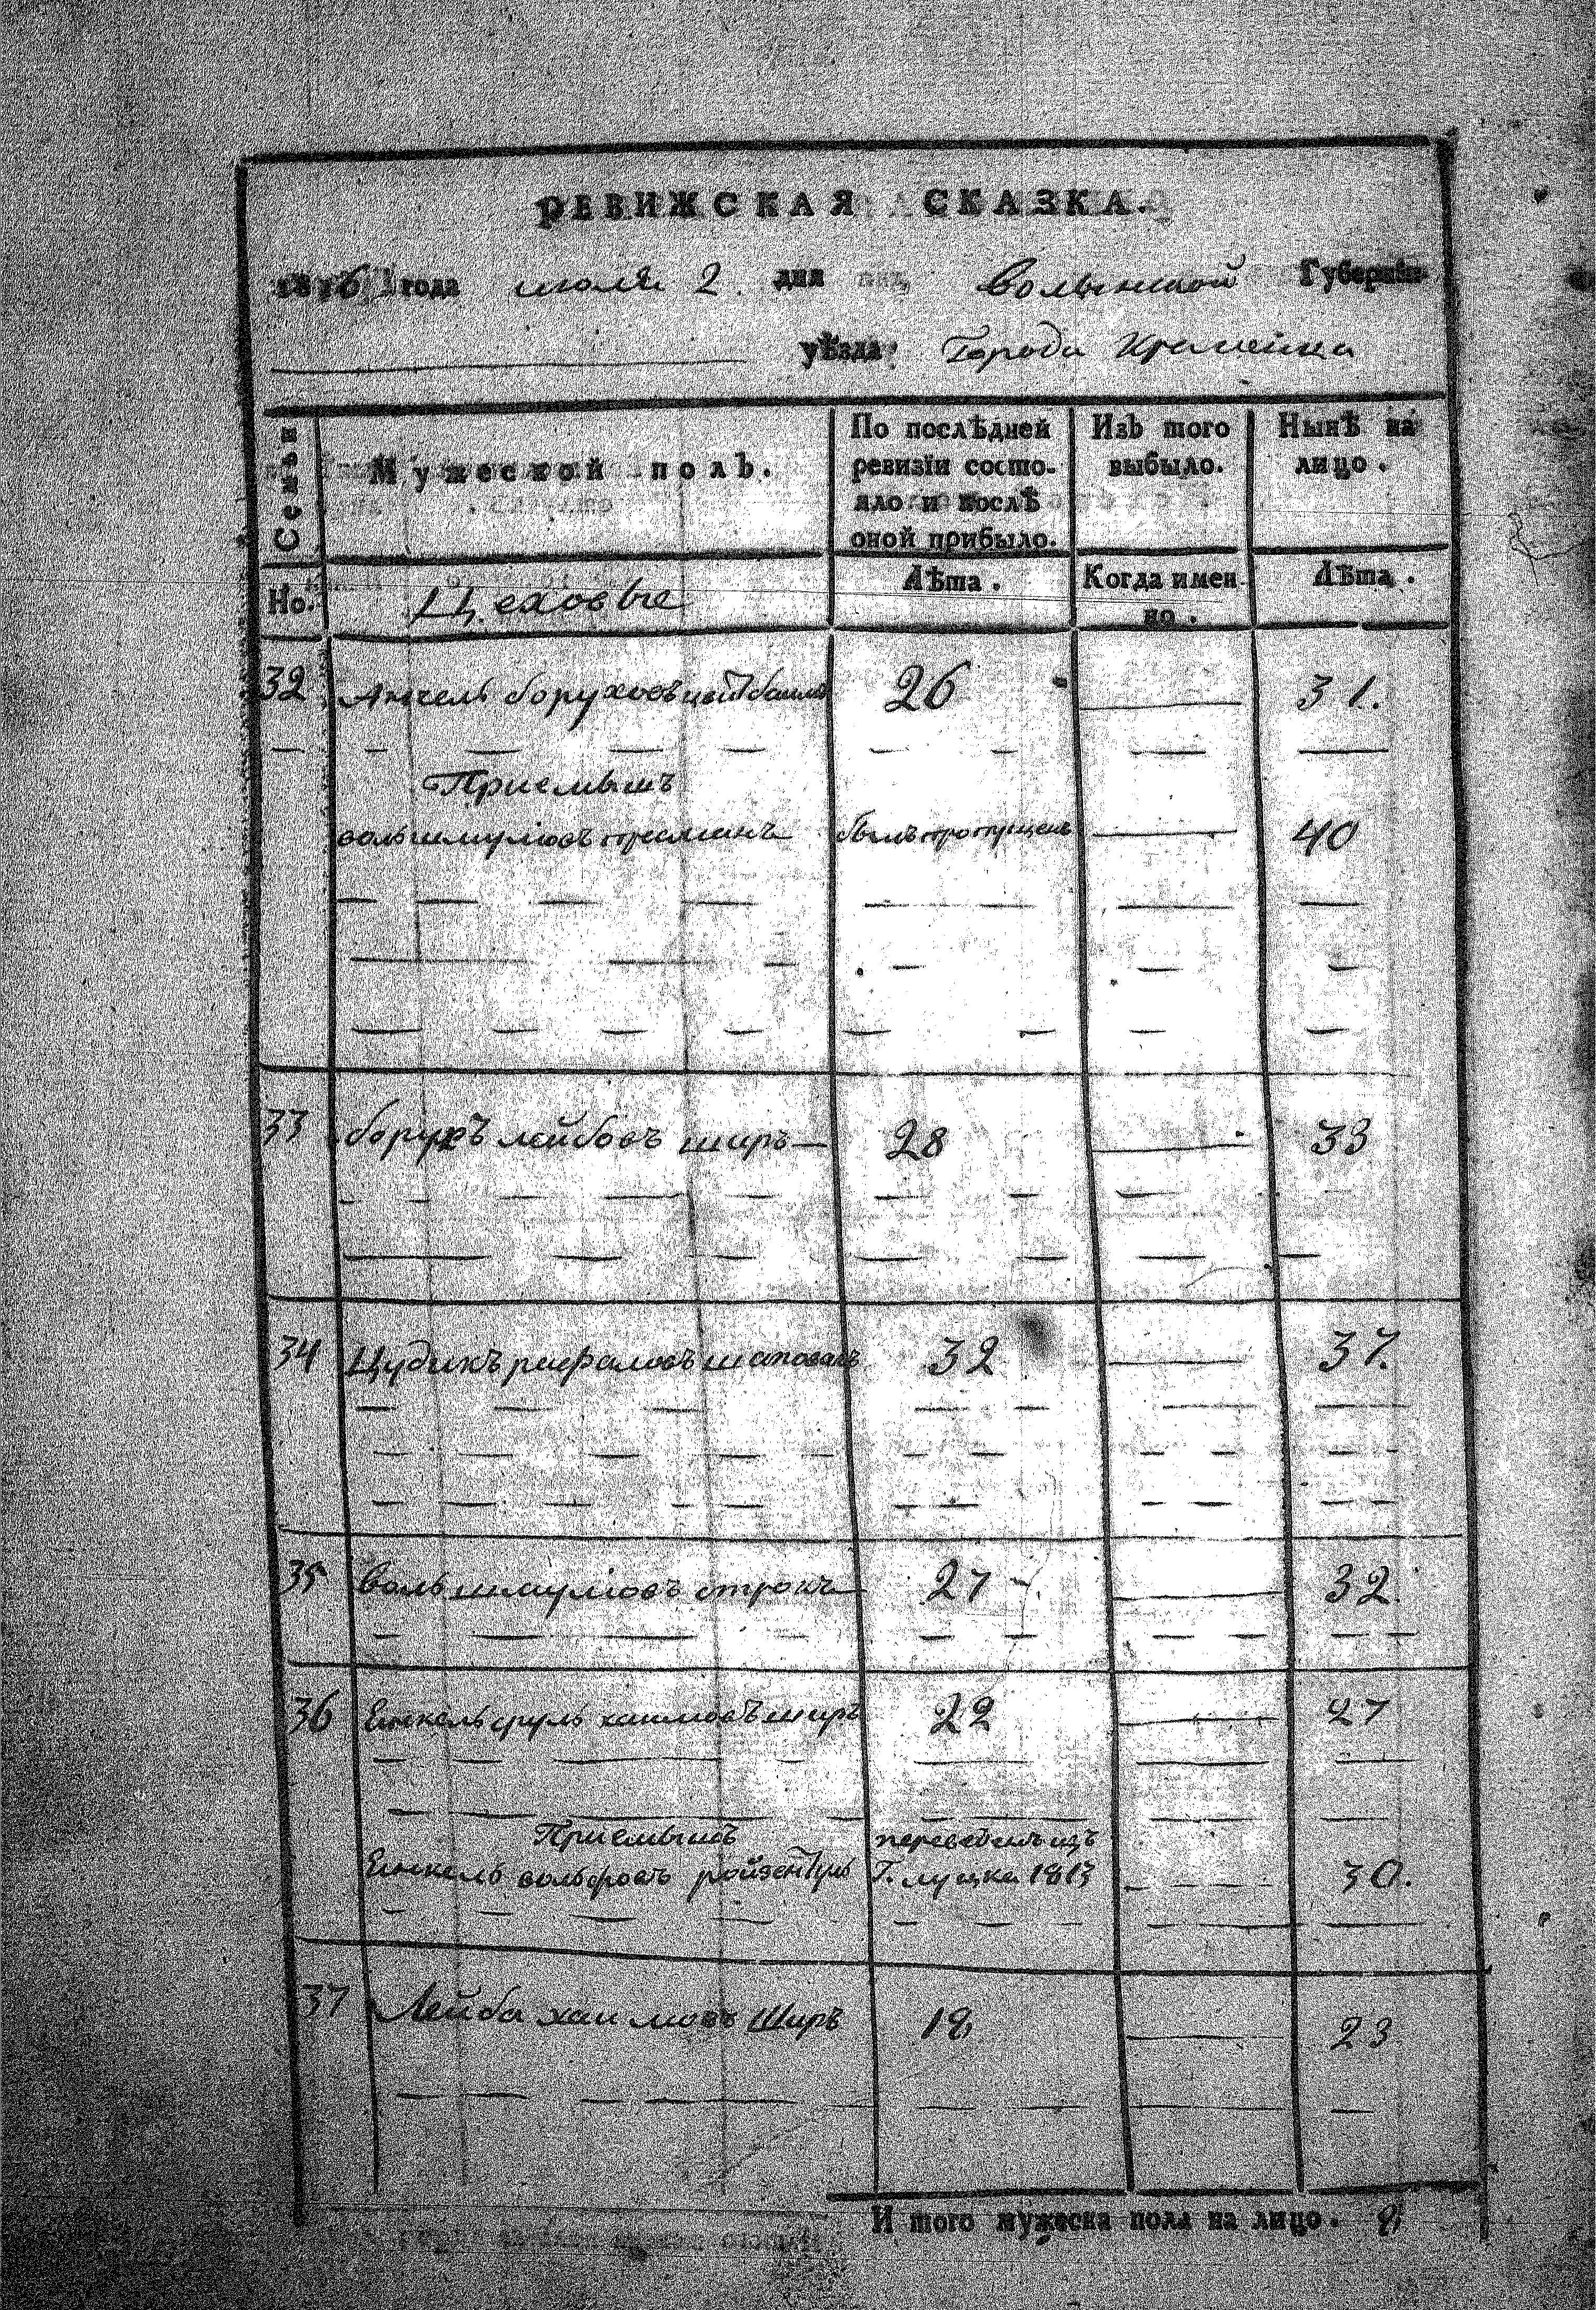 РЕВИЖСКАЯ СКАЗКА.
1816 года июля 2 дня Волынской Губернiи
уѣзда Города Кремѣнца
Семьи
Мужеской полъ.
По послѣдней ревизiи состо-
яло и послѣ
оной прибыло.
Изъ того
выбыло.
Нынѣ на
лицо.
Но.
Цеховые
Лѣта.
Когда имен-
но.
Лѣта.
32 Анчель боруховъ 26 31.
Приемышъ
воль шмулiовъ былъ пропущенъ 40
33 борухъ лейбовъ ширъ 28 33
34 Цудикъ рафаловъ шаповалъ 32 37.
35 воль шмулiовъ строкъ 27 32.
36 Еинкель сруль хаимовъ ширъ 22 27
Приемышъ переведенъ изъ
Еинкель вольфовъ Г. луцка 1813 30.
37 Лейба хаимовъ Ширъ 18 23
И того мужеска пола на лицо. 8